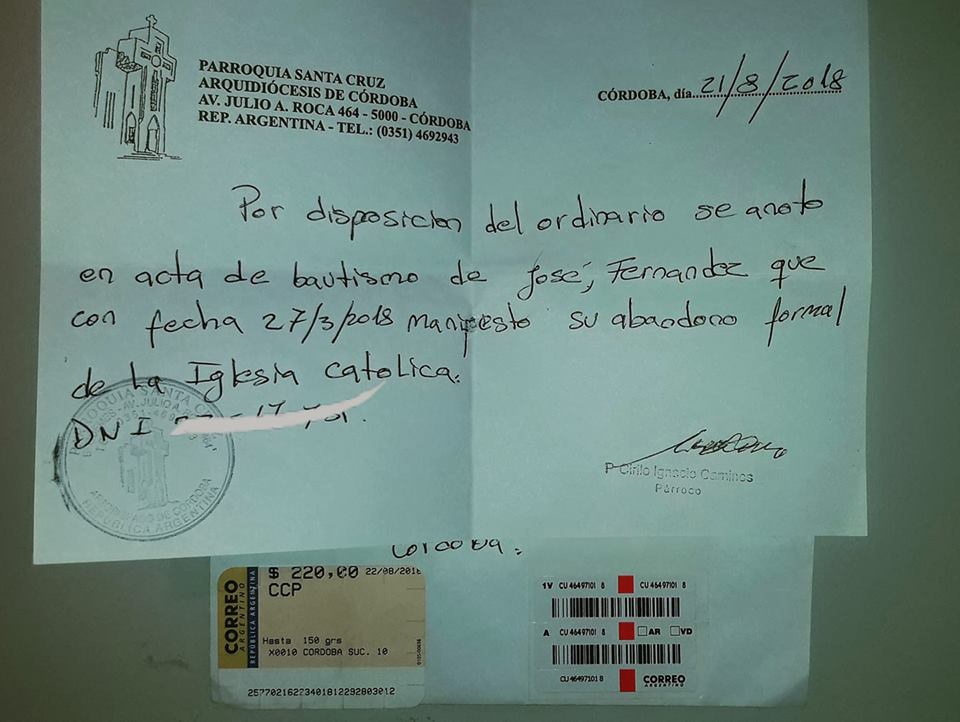 PARROQUIA SANTA CRUZ
ARQUIDIÓCESIS DE CÓRDOBA
AV. JULIO A. ROCA 464 - 5000 - CÓRDOBA
REP. ARGENTINA - TEL.: (0351) 4692943
CÓRDOBA, día 21/8/2018
Por disposicion del ordinario se anoto
en acta de bautismo de José, Fernandez que
con fecha 27/3/2018 manifesto su abandono formal
de la Iglesia Catolica.
DNI
PARROQUIA SANTA CRUZ
ARZOBISPADO DE CORDOBA
REPUBLICA ARGENTINA
P. Cirilo Ignacio Camines
Párroco
Cordoba.
CORREO
ARGENTINO
REPÚBLICA ARGENTINA
$ 220,00 22/08/201
CCP
Hasta 150 grs
X0010 CORDOBA SUC. 10
257702162273401812292803012
1V CU 46497101 8 CU 46497101 8
A CU 46497101 8 AR VD
CU 46497101 8 CORREO
ARGENTINO